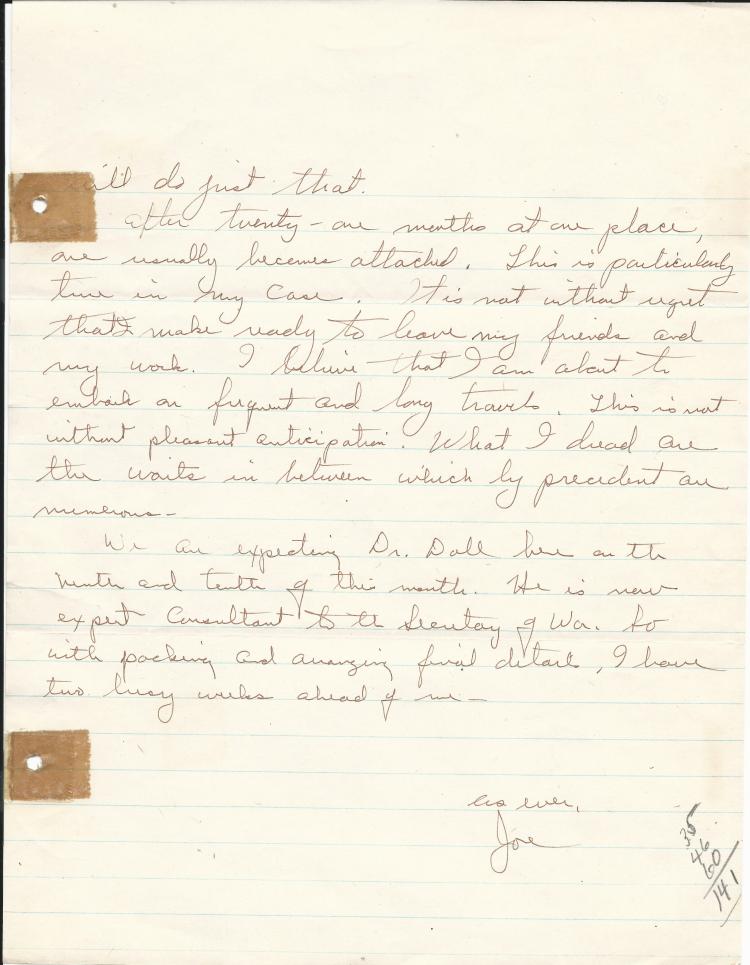 will do just that.
After twenty-one months at one place,
one usually becomes attached. This is particularly
true in my case. It is not without regret
that I make ready to leave my friends and
my work. I believe that I am about to
embark on frequent and long travels. This is not
without pleasant anticipation. What I dread are
the waits in between which by precedent are
numerous-
We are expecting Dr. Doll here on the
ninth and tenth of this month. He is now
expert Consultant to the Secretary of War. So
with packing and arranging final details, I have
two busy weeks ahead of me-
as ever,
Joe
35
46
60
141